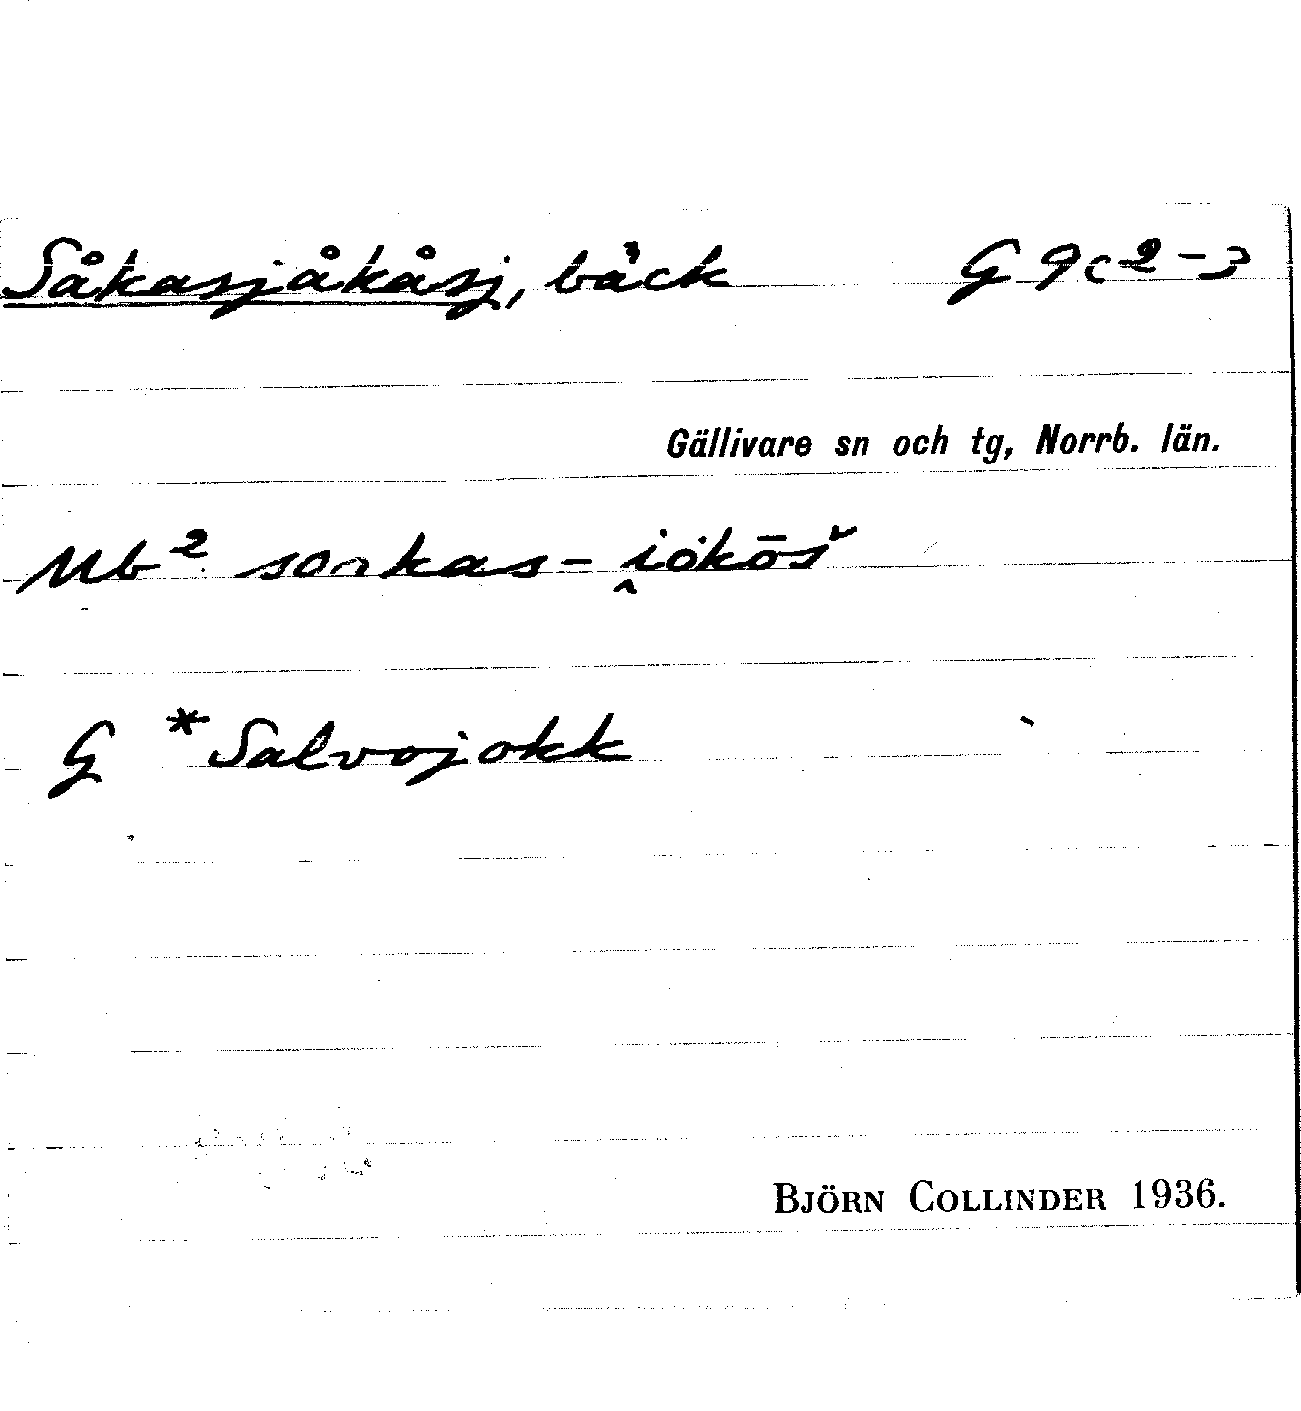 Såkasjåkåsj, bäck G 9c2-3
Gällivare sn och tg, Norrb. län.
Ub²
G *Salvojokk
BJÖRN COLLINDER 1936.